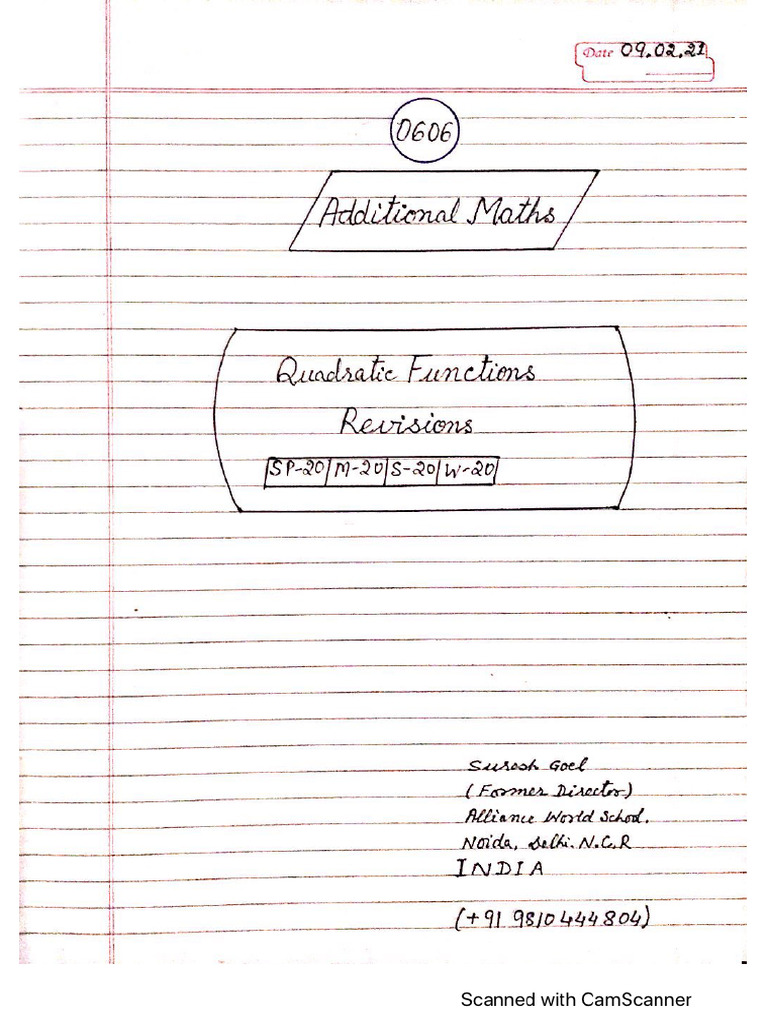 Date 09.02.21
0606
Additional Maths
Quadratic Functions
Revisions
SP-20 M-20 S-20 W-20
Suresh Goel
(Former Director)
Alliance World School.
Noida, Delhi. N.C.R
INDIA
(+91 9810444804)
Scanned with CamScanner